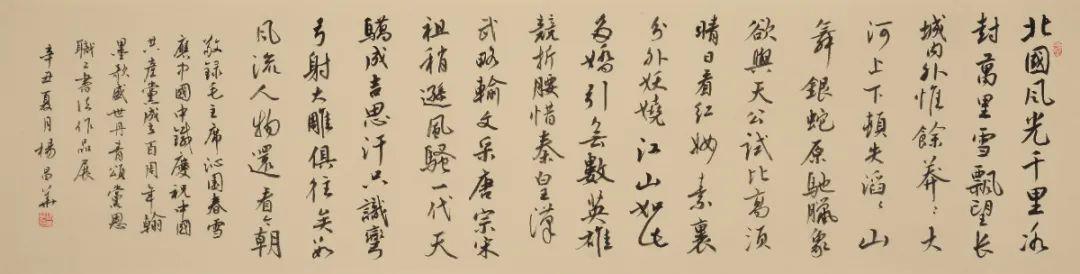 北國風光千里冰
封萬里雪飄望長
城內外惟餘莽〻大
河上下頓失滔〻山
舞銀蛇原馳臘象
欲與天公試比高須
晴日看紅妝素裹
分外妖嬈江山如此
多嬌引無數英雄
競折腰惜秦皇漢
武略輸文采唐宗宋
祖稍遜風騷一代天
驕成吉思汗只識彎
弓射大雕俱往矣數
風流人物還看今朝
敬録毛主席沁園春雪
應中國中鐵慶祝中國
共產黨成立百周年翰
墨歌盛世丹青頌黨恩
職工書法作品展
辛丑夏月楊昌華